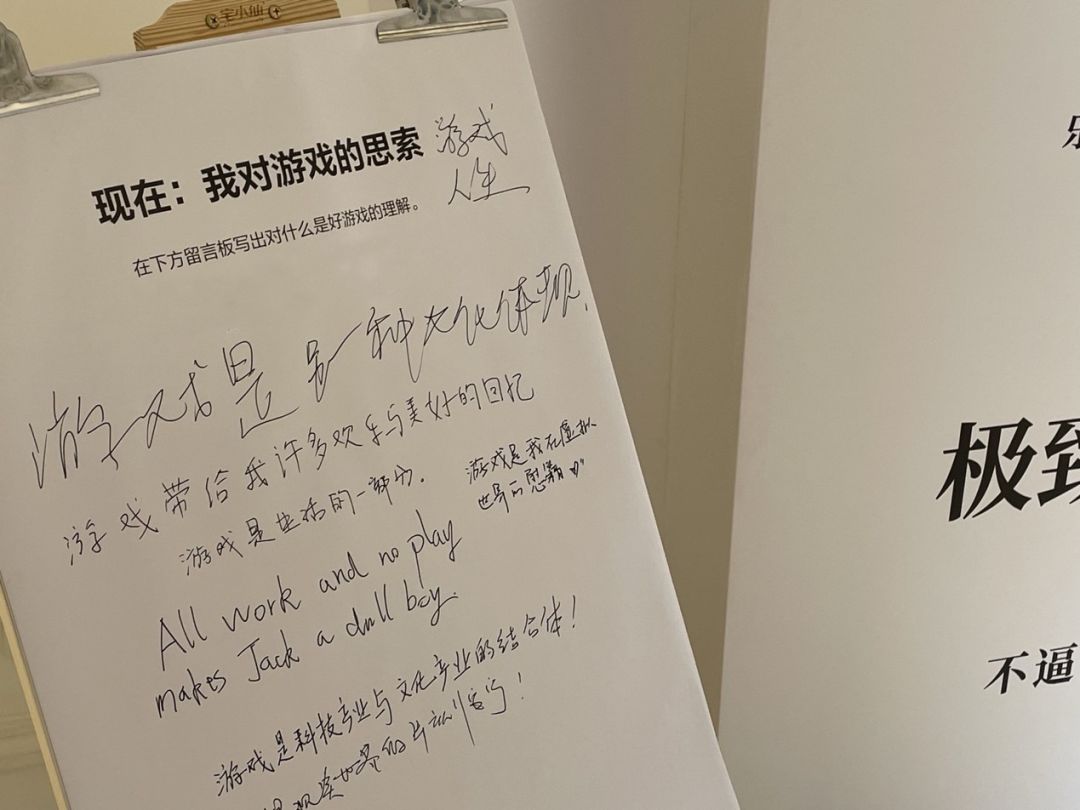 宝小仙
现在：我对游戏的思索
游戏
人生
在下方留言板写出对什么是好游戏的理解。
游戏是另一种文化体现.
游戏带给我许多欢乐与美好的回忆
游戏是生活的一部分.
游戏是我在虚拟
世界的慰藉
All work and no play
makes Jack a dull boy.
游戏是科技产业与文化产业的结合体！
现实世界的
乐
极致
不逼